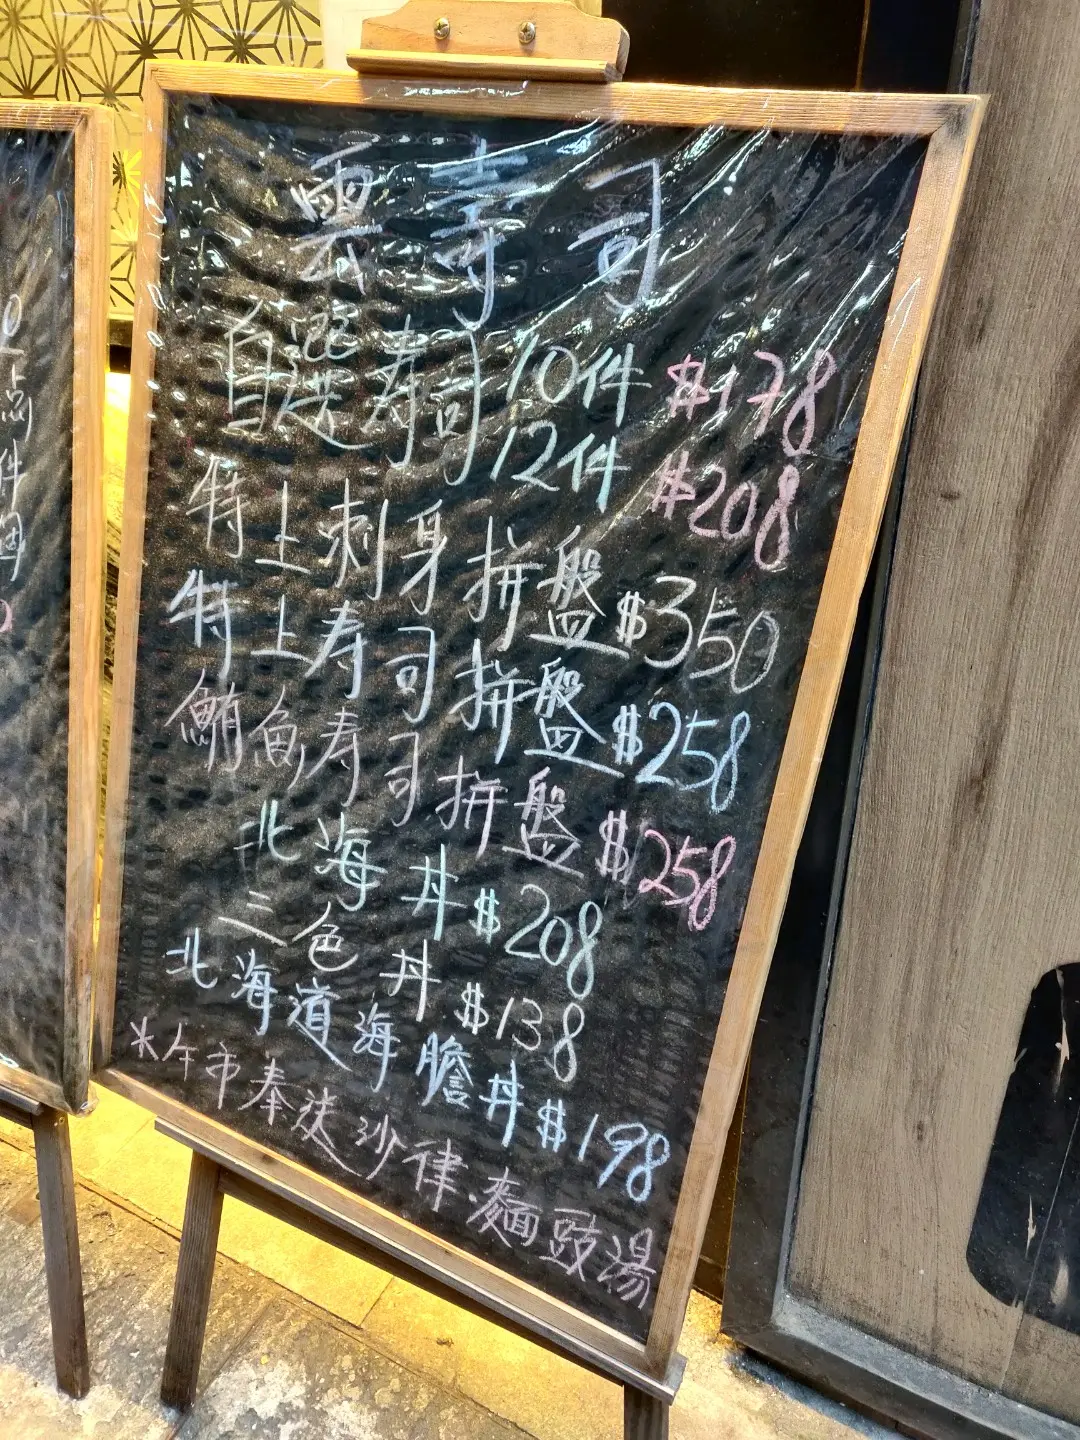 雲寿司
自選寿司10件 $178
12件 $208
特上刺身拼盤$350
特上寿司拼盤$258
鮪魚寿司拼盤$258
北海丼$208
三色丼$138
北海道海膽丼$198
*午市奉送沙律.麵豉湯
点
件